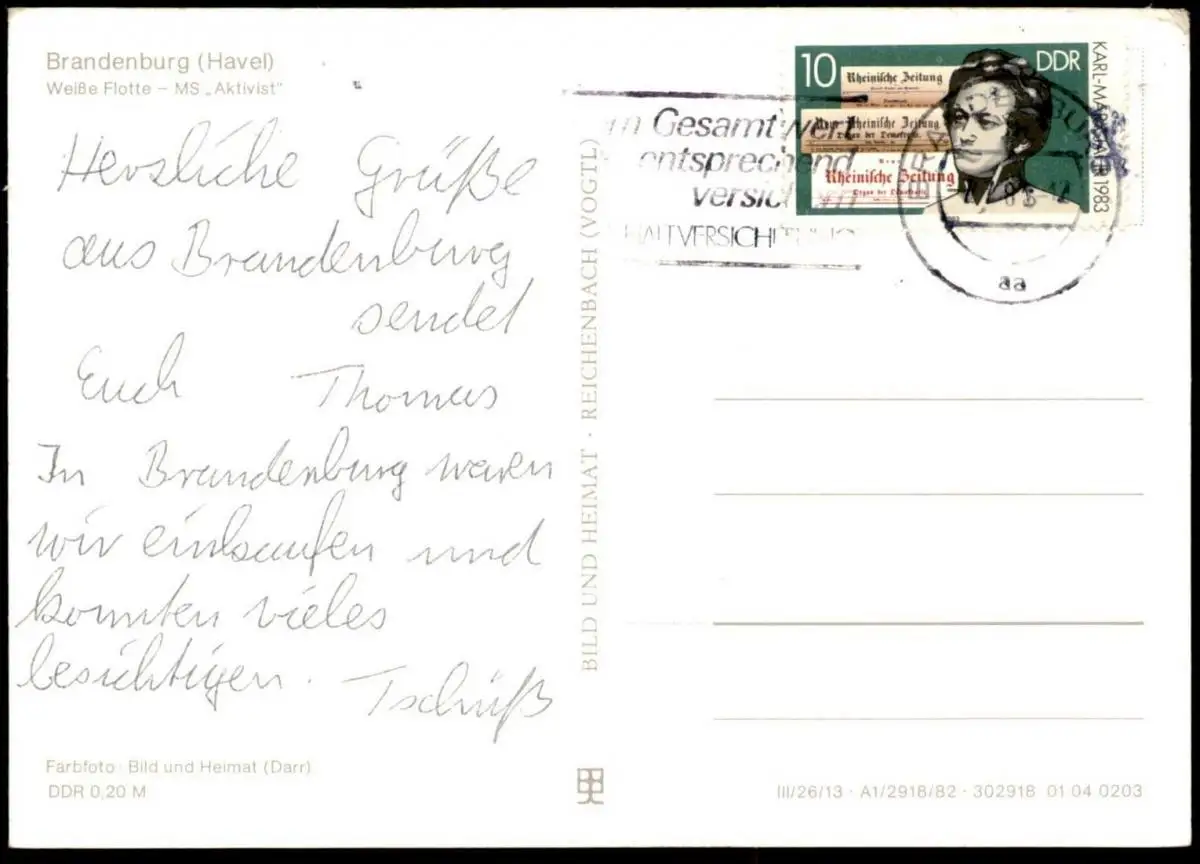 Brandenburg (Havel)
Weiße Flotte – MS „Aktivist"
Herzliche Grüße
aus Brandenburg
sendet
Euch Thomas
In Brandenburg waren
wir einkaufen und
konnten vieles
besichtigen. Tschüß
Farbfoto: Bild und Heimat (Darr)
DDR 0,20 M
BILD UND HEIMAT · REICHENBACH (VOGTL)
10
DDR
KARL-MARX-JAHR 1983
Rheinische Zeitung
Neue Rheinische Zeitung
Organ der Demokratie.
Neue
Rheinische Zeitung
Organ der Demokratie.
Gesamtwert
entsprechend
versichern
aa
III/26/13 · A1/2918/82 · 302918 01 04 0203